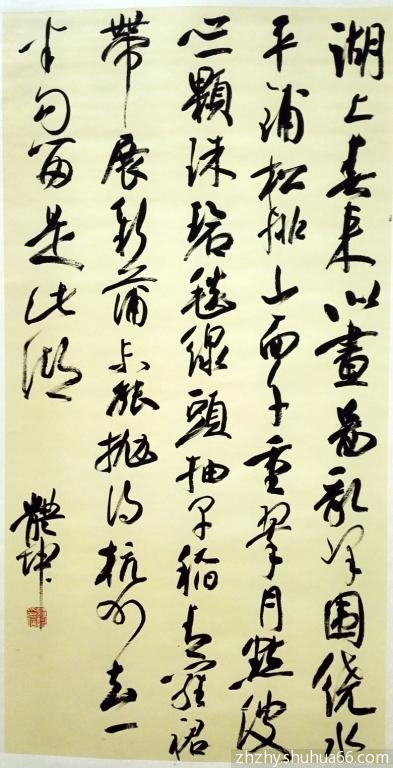 湖上春来似画图乱峰围绕水
平铺松排山面千重翠月点波
心一颗珠碧毯线头抽早稻青罗裙
带展新蒲未能抛得杭州去一
半勾留是此湖
體坤
zhzhy.shuhua66.com